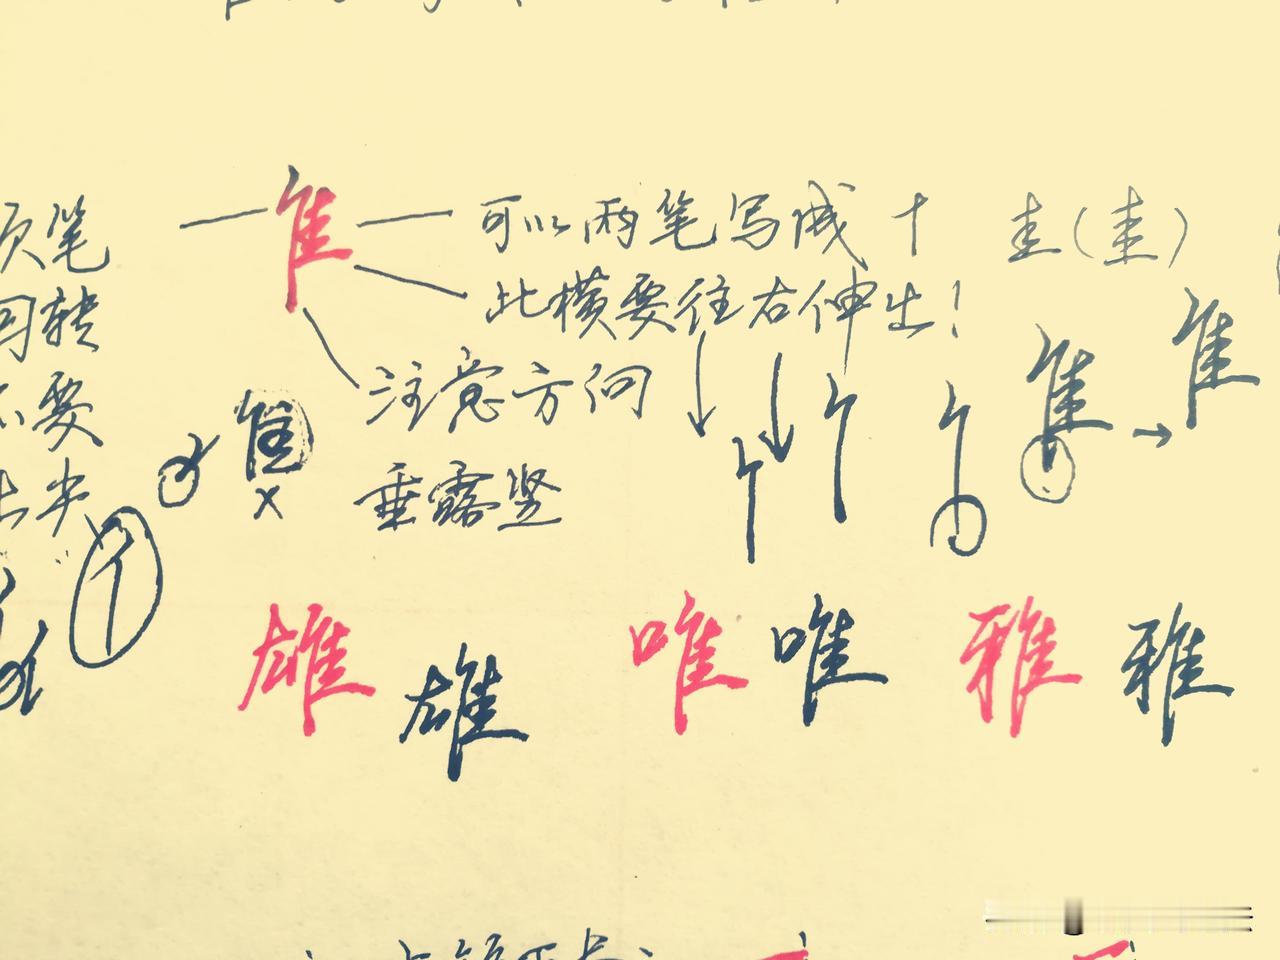 隹 可以两笔写成 亻 圭(圭)
此横要往右伸出!
注意方向
垂露竖
隹 隹 隹
雄 雄 唯 唯 雅 雅
笔
转
要